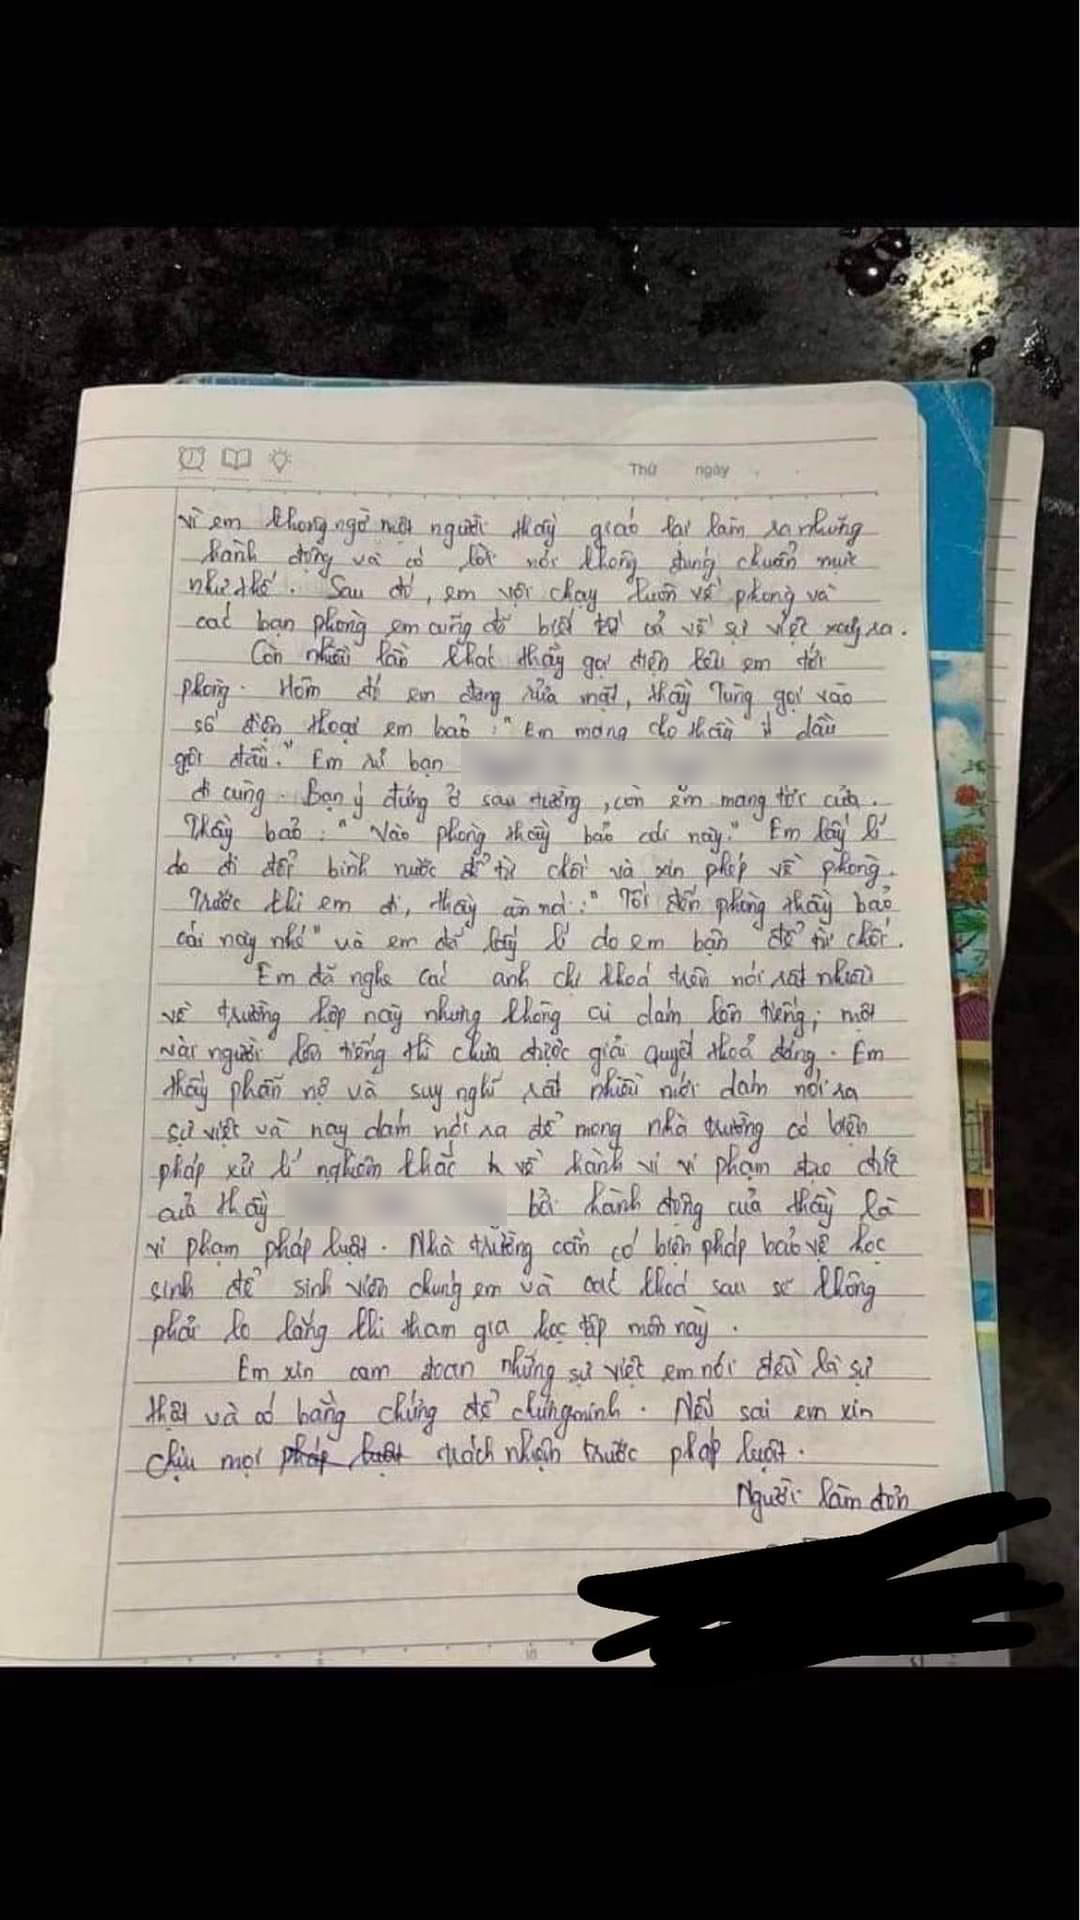 Thứ ngày
vì em không ngờ một người thầy giáo lại làm ra những
hành động và có lời nói không đúng chuẩn mực
như thế. Sau đó, em vội chạy luôn về phòng và
các bạn phòng em cũng đã biết tất cả về sự việc xảy ra.
Còn nhiều lần khác thầy gọi điện kêu em tới
phòng. Hôm đó em đang rửa mặt, thầy Tùng gọi vào
số điện thoại em bảo: "Em mang cho thầy ít dầu
gội đầu." Em rủ bạn
đi cùng. Bạn ý đứng ở sau tường, còn em mang tới cửa.
Thầy bảo: "Vào phòng thầy bảo cái này." Em lấy lí
do đi đổi bình nước để từ chối và xin phép về phòng.
Trước khi em đi, thầy còn nói: "Tối đến phòng thầy bảo
cái này nhé" và em đã lấy lí do em bận để từ chối.
Em đã nghe các anh chị khoá trên nói rất nhiều
về trường hợp này nhưng không ai dám lên tiếng; một
vài người lên tiếng thì chưa được giải quyết thoả đáng. Em
thấy phẫn nộ và suy nghĩ rất nhiều mới dám nói ra
sự việc và nay dám nói ra để mong nhà trường có biện
pháp xử lí nghiêm khắc h về hành vi vi phạm đạo đức
của thầy bởi hành động của thầy là
vi phạm pháp luật. Nhà trường cần có biện pháp bảo vệ học
sinh để sinh viên chúng em và các khoá sau sẽ không
phải lo lắng khi tham gia học tập môn này.
Em xin cam đoan những sự việc em nói đều là sự
thật và có bằng chứng để chứng minh. Nếu sai em xin
chịu mọi pháp luật trách nhiệm trước pháp luật.
Người làm đơn